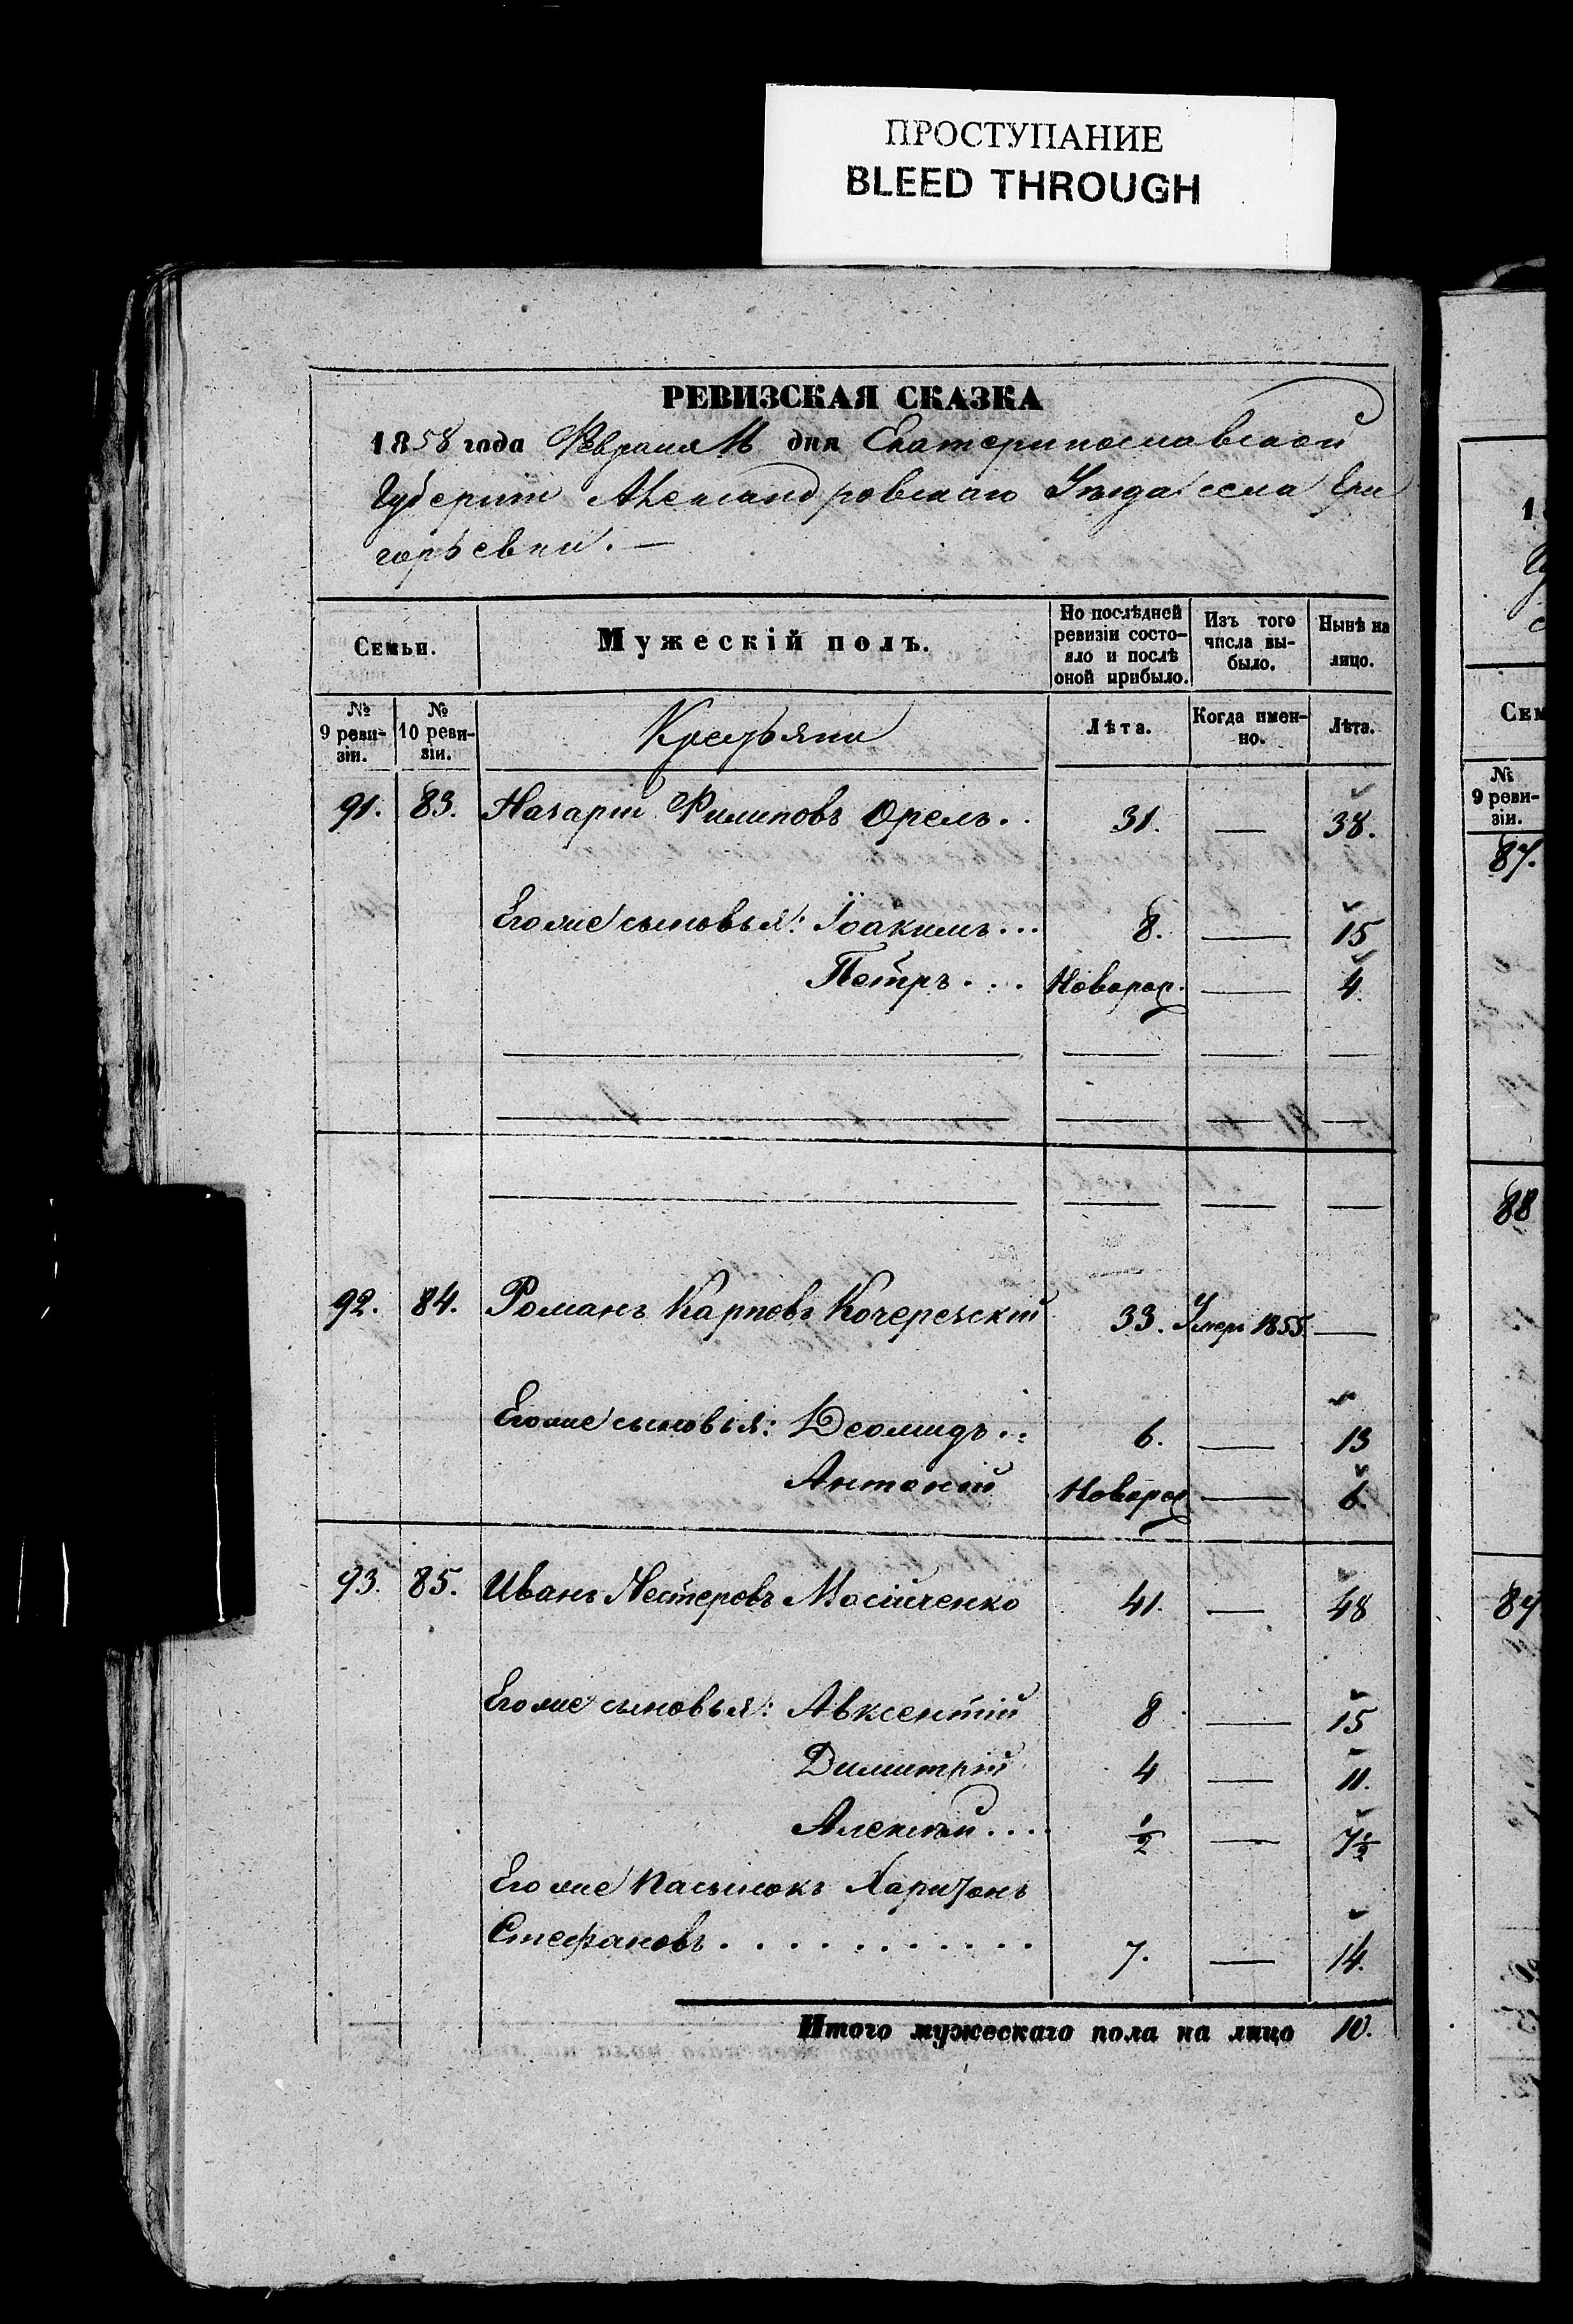 ПРОСТУПАНИЕ
BLEED THROUGH
РЕВИЗСКАЯ СКАЗКА
1858 года Февраля дня Екатеринославской
Губерніи Александровскаго Уѣзда села Гри
горьевки. —
Семьи.
Мужескій полъ.
По послѣдней ревизіи состо-
яло и послѣ
оной прибыло.
Изъ того
числа вы-
было.
Нынѣ на
лицо.
№
9 реви-
зіи.
№
10 реви-
зіи.
Крестьяни
Лѣта.
Когда имен-
но.
Лѣта.
91. 83. Назарій Филиповъ Орелъ.. 31. — 38.
Егоже сыновья: Іоакимъ... 8. — 15
Петръ.... Новорож. — 4.
92. 84. Романъ Карповъ Кочережскій 33. Умеръ 1855. —
Егоже сыновья: Деомидъ.. 6. — 13
Антоній Новорож — 6
93. 85. Иванъ Нестеровъ Мосійченко 41. — 48
Егоже сыновья: Авксентій 8 — 15
Димитрій 4 — 11.
Алексѣй.... ½ — 7½
Егоже пасынокъ Харитонъ
Стефановъ............ 7. — 14.
Итого мужескаго пола на лицо 10.
1
Сем
№
9 реви-
зіи.
87.
88
89